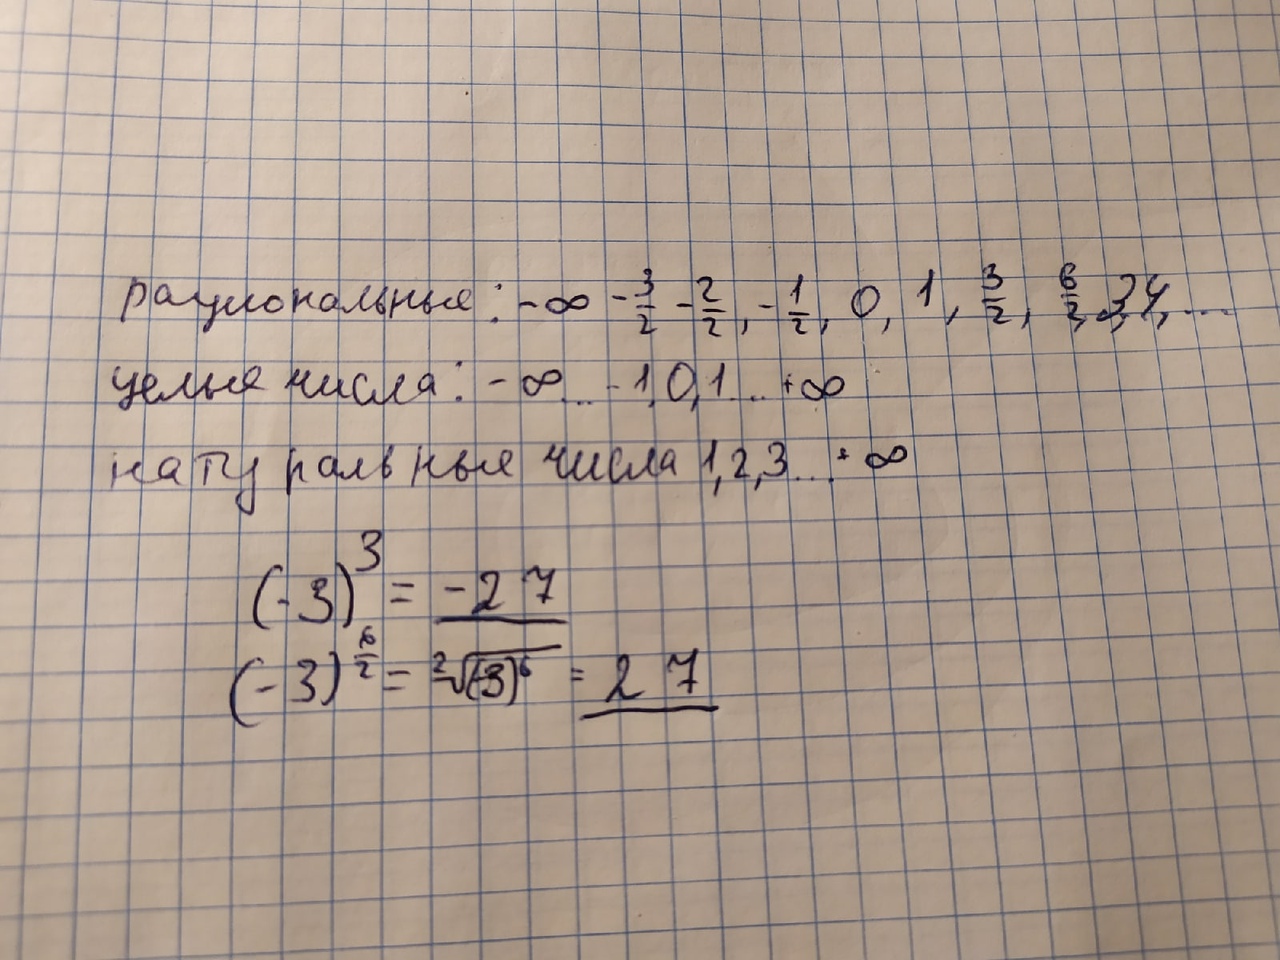 рациональные: -∞ -3/2 -2/2, -1/2, 0, 1, 3/2, 6/2, 3, 4, ...
целые числа: -∞... -1,0,1... +∞
натуральные числа 1,2,3... +∞
(-3)^3 = -27
(-3)^(6/2) = ²√(-3)^6 = 27